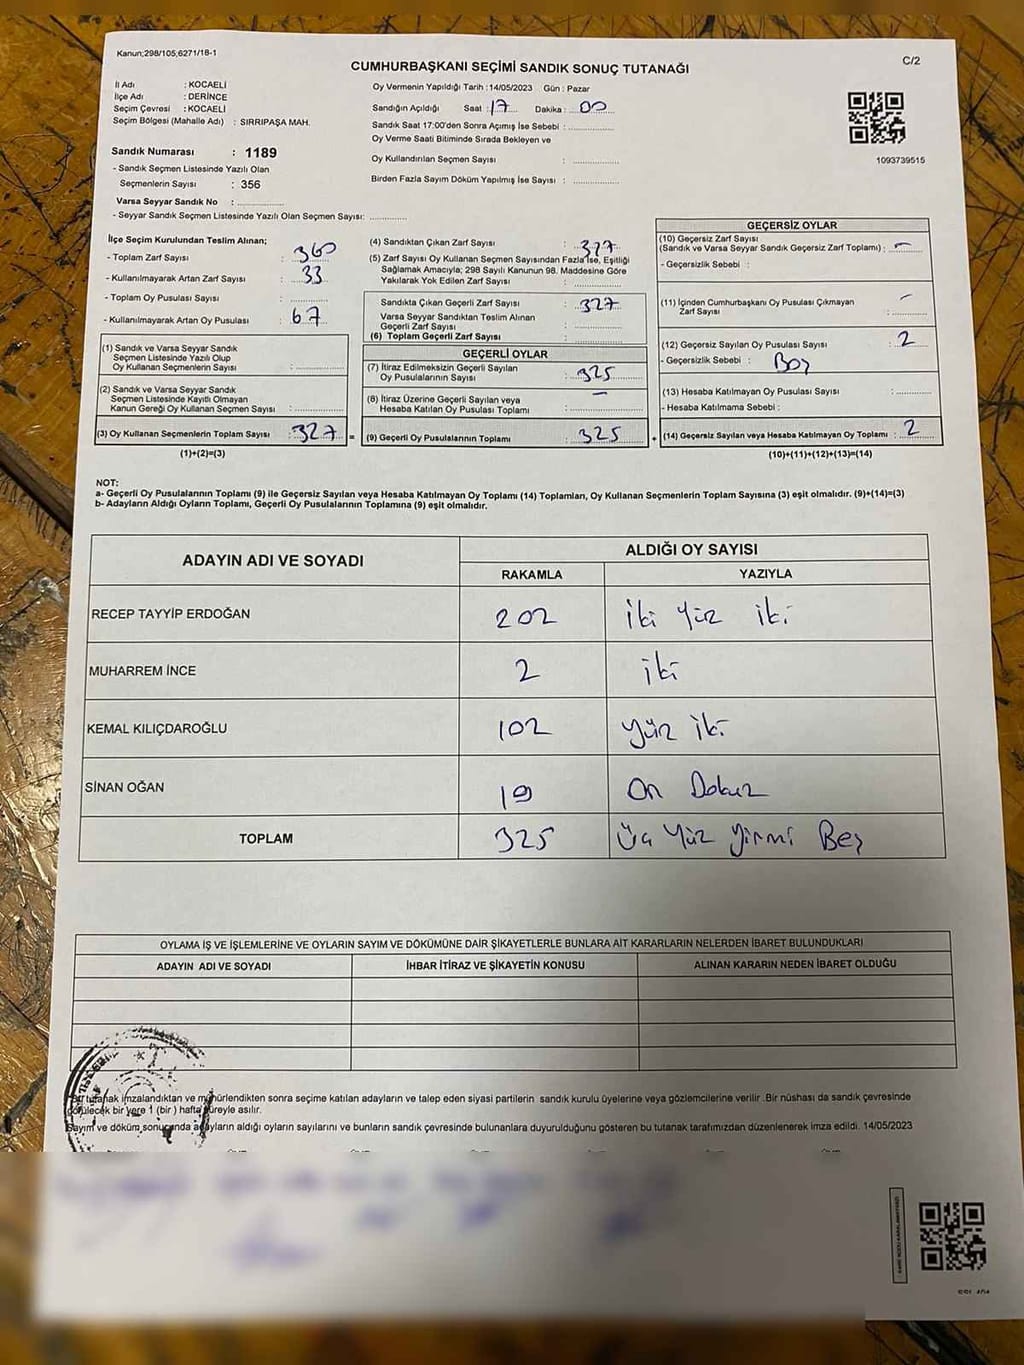 Kanun;298/105,6271/18-1
C/2
CUMHURBAŞKANI SEÇİMİ SANDIK SONUÇ TUTANAĞI
İl Adı : KOCAELİ
İlçe Adı : DERİNCE
Seçim Çevresi : KOCAELİ
Seçim Bölgesi (Mahalle Adı) : SIRRIPAŞA MAH.
Sandık Numarası : 1189
- Sandık Seçmen Listesinde Yazılı Olan
Seçmenlerin Sayısı : 356
Varsa Seyyar Sandık No :
- Seyyar Sandık Seçmen Listesinde Yazılı Olan Seçmen Sayısı:
Oy Vermenin Yapıldığı Tarih : 14/05/2023 Gün : Pazar
Sandığın Açıldığı Saat : 17 Dakika : 00
Sandık Saat 17:00'den Sonra Açımış İse Sebebi :
Oy Verme Saati Bitiminde Sırada Bekleyen ve
Oy Kullandırılan Seçmen Sayısı :
Birden Fazla Sayım Döküm Yapılmış İse Sayısı :
1093739515
İlçe Seçim Kurulundan Teslim Alınan;
- Toplam Zarf Sayısı : 360
- Kullanılmayarak Artan Zarf Sayısı : 33
- Toplam Oy Pusulası Sayısı :
- Kullanılmayarak Artan Oy Pusulası : 67
(1) Sandık ve Varsa Seyyar Sandık
Seçmen Listesinde Yazılı Olup
Oy Kullanan Seçmenlerin Sayısı :
(2) Sandık ve Varsa Seyyar Sandık
Seçmen Listesinde Kayıtlı Olmayan
Kanun Gereği Oy Kullanan Seçmen Sayısı :
(3) Oy Kullanan Seçmenlerin Toplam Sayısı : 327 =
(1)+(2)=(3)
(4) Sandıktan Çıkan Zarf Sayısı : 327
(5) Zarf Sayısı Oy Kullanan Seçmen Sayısından Fazla İse, Eşitliği
Sağlamak Amacıyla; 298 Sayılı Kanunun 98. Maddesine Göre
Yakılarak Yok Edilen Zarf Sayısı :
Sandıkta Çıkan Geçerli Zarf Sayısı : 327
Varsa Seyyar Sandıktan Teslim Alınan
Geçerli Zarf Sayısı :
(6) Toplam Geçerli Zarf Sayısı :
GEÇERLİ OYLAR
(7) İtiraz Edilmeksizin Geçerli Sayılan
Oy Pusulalarının Sayısı : 325
(8) İtiraz Üzerine Geçerli Sayılan veya
Hesaba Katılan Oy Pusulası Toplamı : –
(9) Geçerli Oy Pusulalarının Toplamı : 325 +
GEÇERSİZ OYLAR
(10) Geçersiz Zarf Sayısı
(Sandık ve Varsa Seyyar Sandık Geçersiz Zarf Toplamı) : –
- Geçersizlik Sebebi :
(11) İçinden Cumhurbaşkanı Oy Pusulası Çıkmayan –
Zarf Sayısı :
(12) Geçersiz Sayılan Oy Pusulası Sayısı : 2
- Geçersizlik Sebebi : Boş
(13) Hesaba Katılmayan Oy Pusulası Sayısı :
- Hesaba Katılmama Sebebi :
(14) Geçersiz Sayılan veya Hesaba Katılmayan Oy Toplamı : 2
(10)+(11)+(12)+(13)=(14)
NOT:
a- Geçerli Oy Pusulalarının Toplamı (9) ile Geçersiz Sayılan veya Hesaba Katılmayan Oy Toplamı (14) Toplamları, Oy Kullanan Seçmenlerin Toplam Sayısına (3) eşit olmalıdır. (9)+(14)=(3)
b- Adayların Aldığı Oyların Toplamı, Geçerli Oy Pusulalarının Toplamına (9) eşit olmalıdır.
ADAYIN ADI VE SOYADI
ALDIĞI OY SAYISI
RAKAMLA YAZIYLA
RECEP TAYYİP ERDOĞAN 202 iki yüz iki
MUHARREM İNCE 2 iki
KEMAL KILIÇDAROĞLU 102 yüz iki
SİNAN OĞAN 19 On Dokuz
TOPLAM 325 Üç Yüz Yirmi Beş
OYLAMA İŞ VE İŞLEMLERİNE VE OYLARIN SAYIM VE DÖKÜMÜNE DAİR ŞİKAYETLERLE BUNLARA AİT KARARLARIN NELERDEN İBARET BULUNDUKLARI
ADAYIN ADI VE SOYADI İHBAR İTİRAZ VE ŞİKAYETİN KONUSU ALINAN KARARIN NEDEN İBARET OLDUĞU
Bu tutanak imzalandıktan ve mühürlendikten sonra seçime katılan adayların ve talep eden siyasi partilerin sandık kurulu üyelerine veya gözlemcilerine verilir .Bir nüshası da sandık çevresinde
görülecek bir yere 1 (bir ) hafta süreyle asılır.
Sayım ve döküm sonucunda adayların aldığı oyların sayılarını ve bunların sandık çevresinde bulunanlara duyurulduğunu gösteren bu tutanak tarafımızdan düzenlenerek imza edildi. 14/05/2023